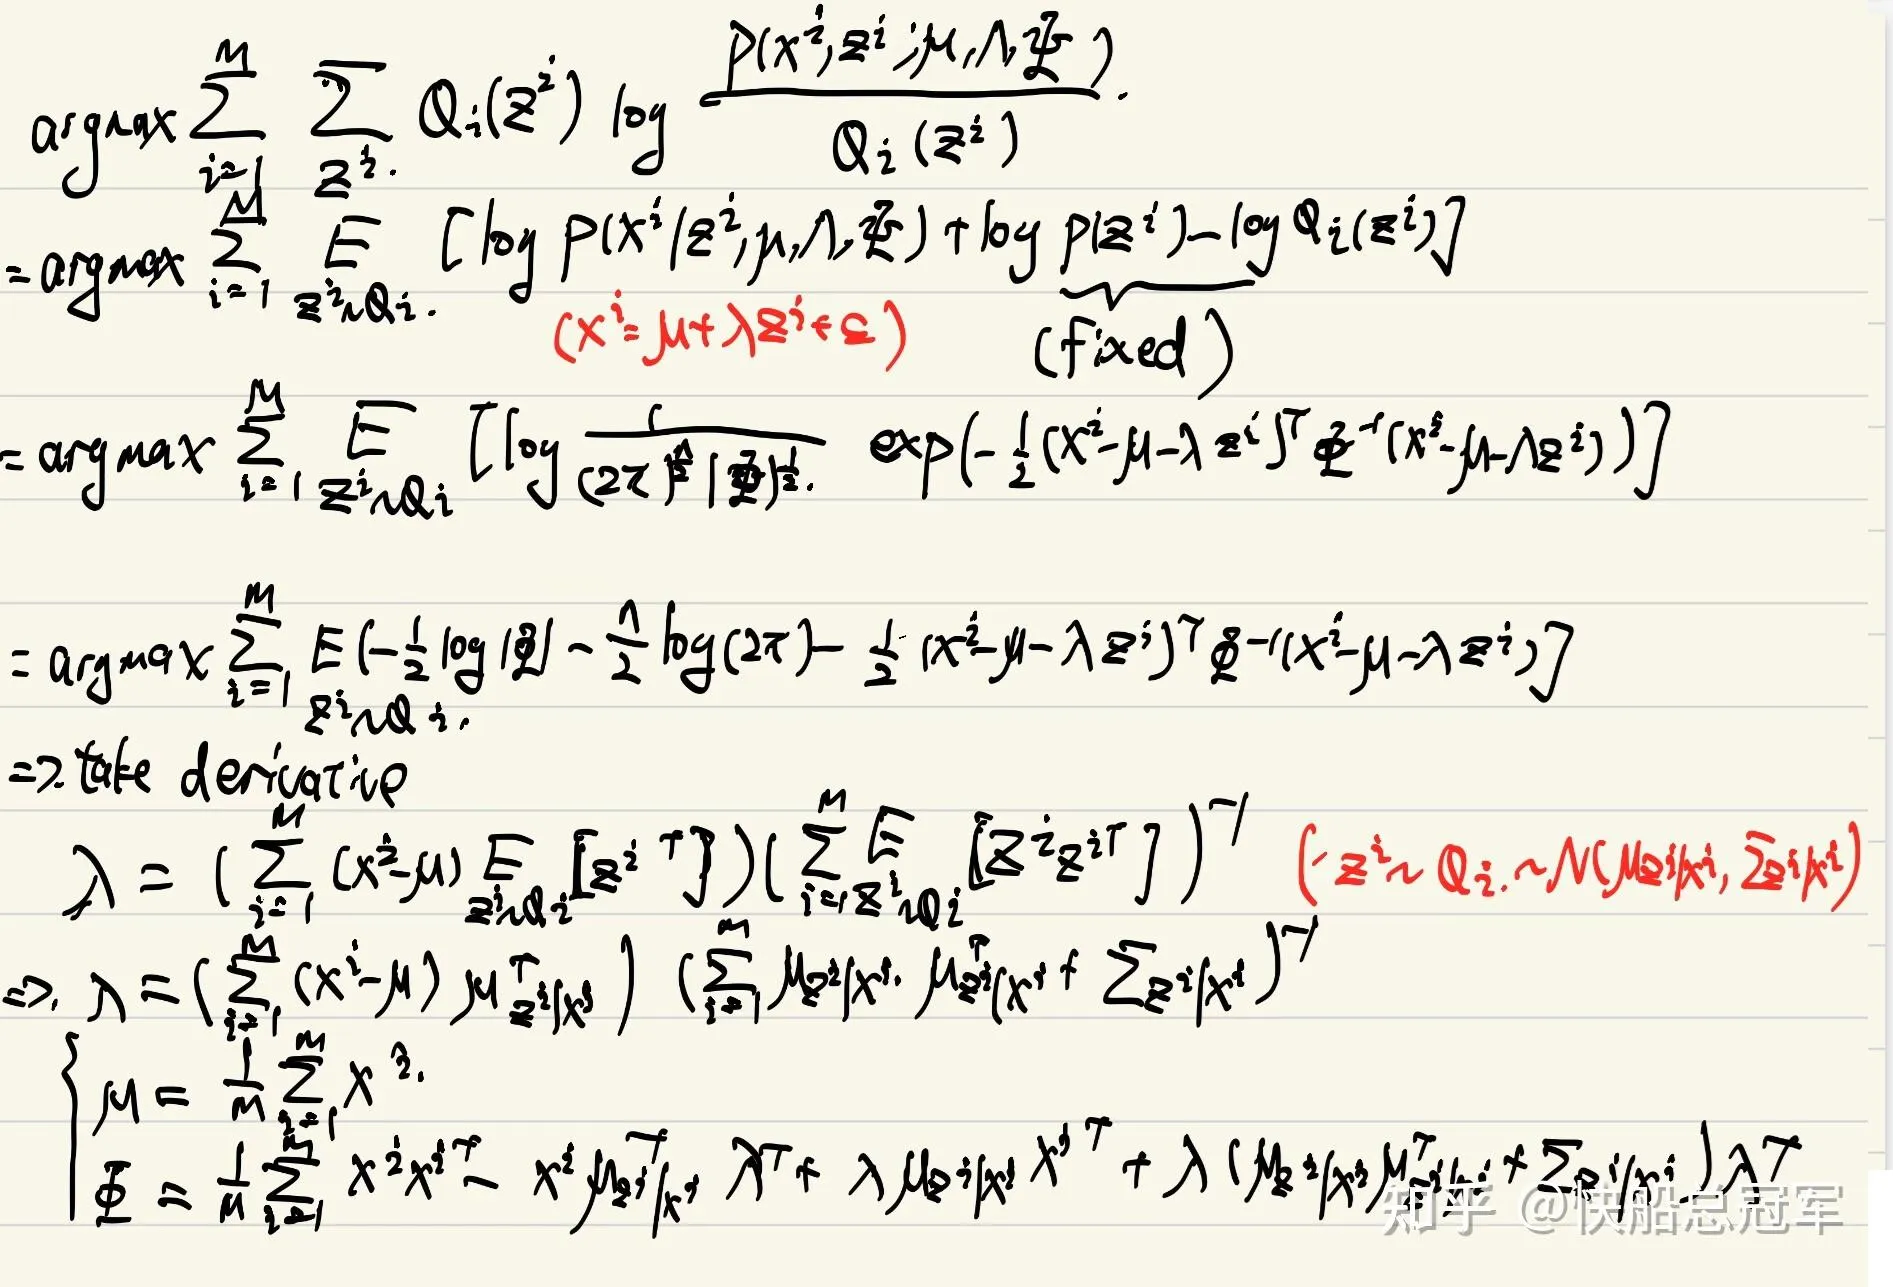 argmax Σ_{i=1}^{M} Σ_{z^i} Q_i(z^i) log p(x^i, z^i; μ, Λ, Ψ) / Q_i(z^i)
= argmax Σ_{i=1}^{M} E_{z^i∼Q_i} [log p(x^i|z^i, μ, Λ, Ψ) + log p(z^i) − log Q_i(z^i)]
(x^i = μ + λz^i + ε) (fixed)
= argmax Σ_{i=1}^{M} E_{z^i∼Q_i} [log 1/((2π)^{n/2} |Φ|^{1/2}) exp(−1/2 (x^i − μ − λz^i)^T Φ^{-1} (x^i − μ − λz^i))]
= argmax Σ_{i=1}^{M} E_{z^i∼Q_i} [−1/2 log|Φ| − n/2 log(2π) − 1/2 (x^i − μ − λz^i)^T Φ^{-1} (x^i − μ − λz^i)]
=> take derivative
λ = (Σ_{i=1}^{M} (x^i − μ) E_{z^i∼Q_i} [z^{iT}]) (Σ_{i=1}^{M} E_{z^i∼Q_i} [z^i z^{iT}])^{-1} (∵ z^i ∼ Q_i ∼ N(μ_{z^i|x^i}, Σ_{z^i|x^i})
=> λ = (Σ_{i=1}^{M} (x^i − μ) μ^T_{z^i|x^i}) (Σ_{i=1}^{m} μ_{z^i|x^i} μ^T_{z^i|x^i} + Σ_{z^i|x^i})^{-1}
{ μ = 1/m Σ_{i=1}^{m} x^i
Φ = 1/M Σ_{i=1}^{m} x^i x^{iT} − x^i μ^T_{z^i|x^i} λ^T + λ μ_{z^i|x^i} x^{iT} + λ (μ_{z^i|x^i} μ^T_{z^i|x^i} + Σ_{z^i|x^i}) λ^T
知乎 @快船总冠军